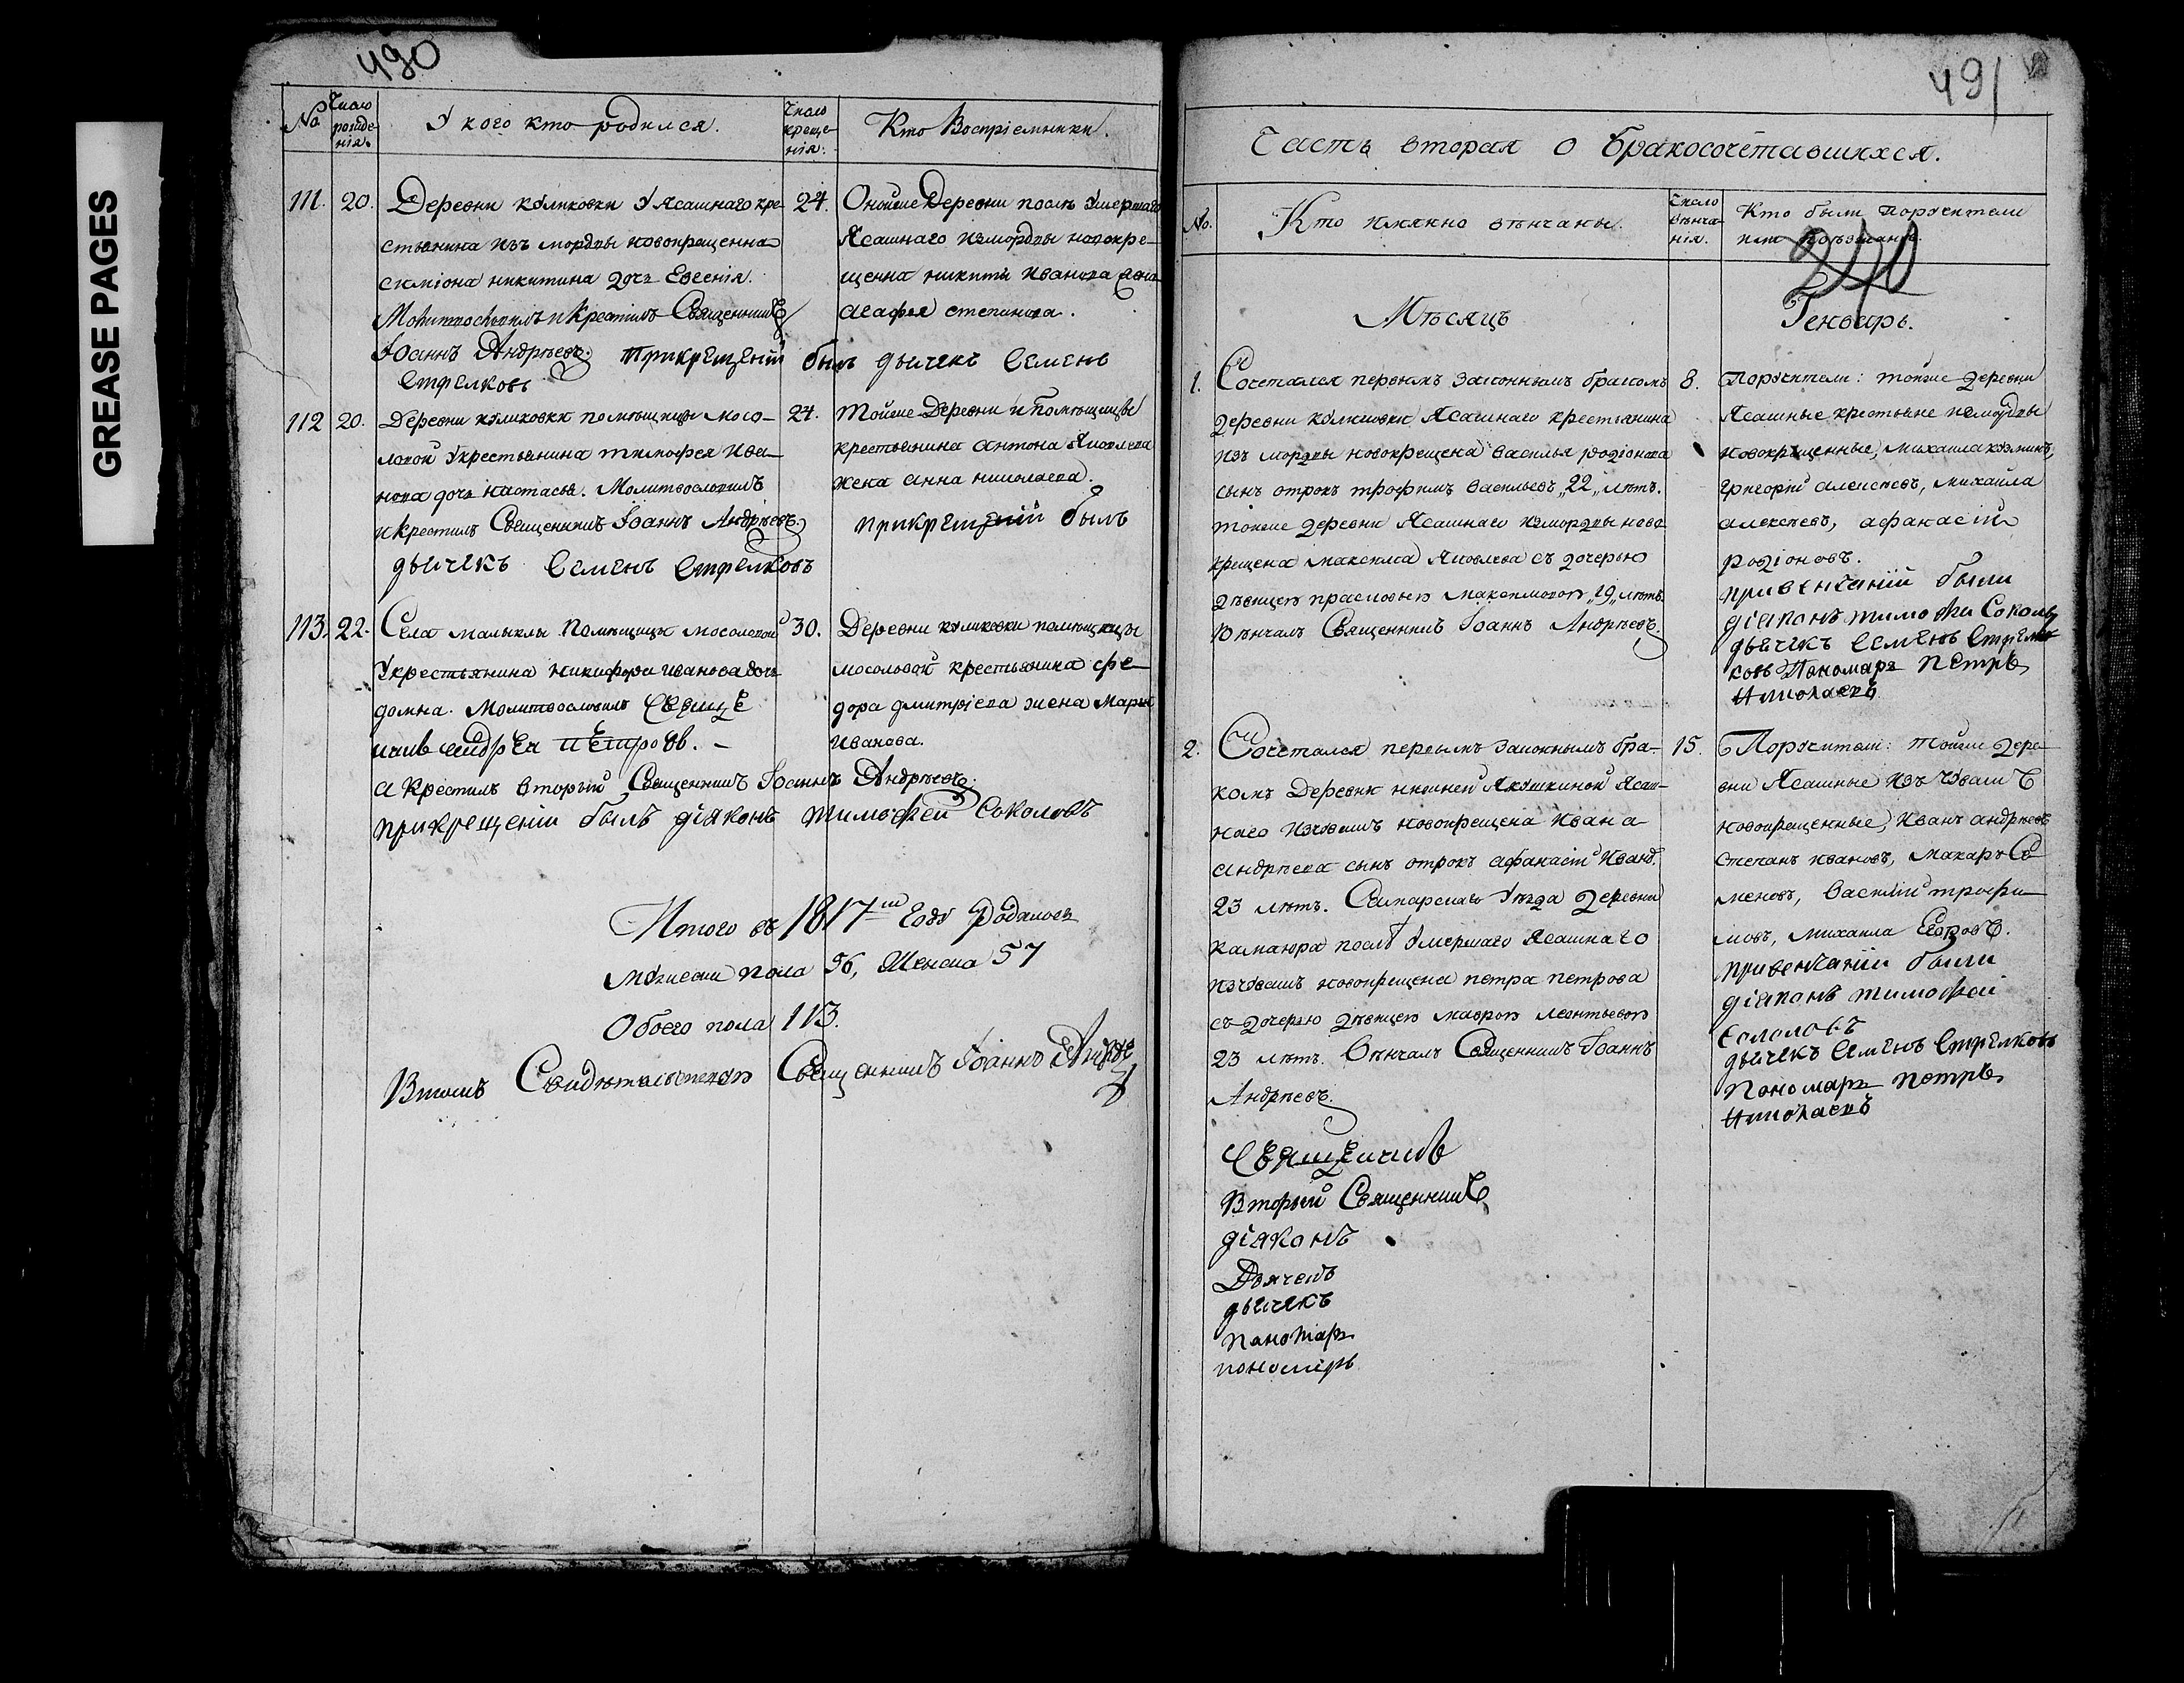 GREASE PAGES
490
№
Число рожденія.
У кого кто родился.
Число крещенія.
Кто Воспріемники.
111. 20. Деревни куликовки У Ясашнаго кре-
стьянина изъ мордвы новокрещенна
симіона никитина дочь Евгенія.
Молитвословилъ и Крестилъ Священникъ
Іоаннъ Андрѣевъ. Прикрещеніи былъ дьячекъ Семенъ
Стрелковъ
24. Онойже Деревни послѣ Умершаго
Ясашнаго изъмордвы новокре-
щенна никиты Иванова жена
агафья степанова.
112 20. Деревни куликовки помѣщицы мосо-
ловой Укрестьянина тимофея Ива-
нова дочь настасья. Молитвословилъ
и Крестилъ Священникъ Іоаннъ Андрѣевъ.
дьячекъ Семенъ Стрелковъ
24. Тойже Деревни и Помѣщицы
крестьянина антона Яковлева
жена анна николаева.
прикрещеніи былъ
113. 22. Села малыклы Помѣщицы мосоловой
Укрестьянина никифора иванова дочь
домна. Молитвословилъ Свяще
никъ андрей петровъ. –
а Крестилъ вторый Священникъ Іоаннъ Андрѣевъ.
прикрещеніи былъ діяконъ тимофей Соколовъ
30. Деревни куликовки помѣщицы
мосоловой крестьянина фе-
дора дмитріева жена Марья
Иванова.
Итого въ 1817-мъ Году Родилось
мужеска пола 56, Женска 57
Обоего пола 113.
Втомъ Свидѣтельствую Священникъ Іоаннъ Андрѣе
491
Часть вторая о Бракосочетавшихся.
№.
Кто имянно вѣнчаны.
Число вѣнчанія.
Кто были поручители
или поѣзжане.
240
Мѣсяцъ Генварь.
1. Сочетался первымъ законнымъ бракомъ
деревни куликовки Ясашнаго крестьянина
изъ мордвы новокрещена василья родіонова
сынъ отрокъ трофимъ васильевъ „22„ лѣтъ.
тойже деревни Ясашнаго изъмордвы ново
крещена максима Яковлева съ дочерью
дѣвицею прасковьею максимовою „19„ лѣтъ.
Вѣнчалъ Священникъ Іоаннъ Андрѣевъ.
8. Поручители: тойже деревни
Ясашные крестьяне изъмордвы
новокрещенные, михаила козминъ,
григорій алексѣевъ, михаила
алексѣевъ, афанасій
родіоновъ.
привенчаніи были
діяконъ тимофи Соколв
дьячекъ Семенъ Стрелко
ковъ Пономарь петръ
Николаевъ
2. Сочетался первымъ законнымъ бра-
комъ Деревни нижней Якушкиной Ясаш-
наго изчувашъ новокрещена Ивана
андрѣева сынъ отрокъ афанасій Иванов.
23 лѣтъ. Самарскаго Уѣзда Деревни
камаюра послѣ Умершаго Ясашнаго
изчувашъ новокрещена петра петрова
съ дочерью дѣвицею маврою леонтьевою
23 лѣтъ. Вѣнчалъ Священникъ Іоаннъ
Андрѣевъ.
15. Поручители: тойже дере-
вни Ясашные изъ чувашъ
новокрещенные, Иванъ андрѣевъ
степанъ ивановъ, макаръ Се
меновъ, василій трофи-
мовъ, михаила Егоровъ.
привенчаніи были
діяконъ тимофей
Соколовъ
дьячекъ Семенъ Стрелковъ
Пономарь петръ
Николаевъ
Священникъ
Вторый Священникъ
діяконъ
Дьячекъ
дьячекъ
пономарь
пономарь